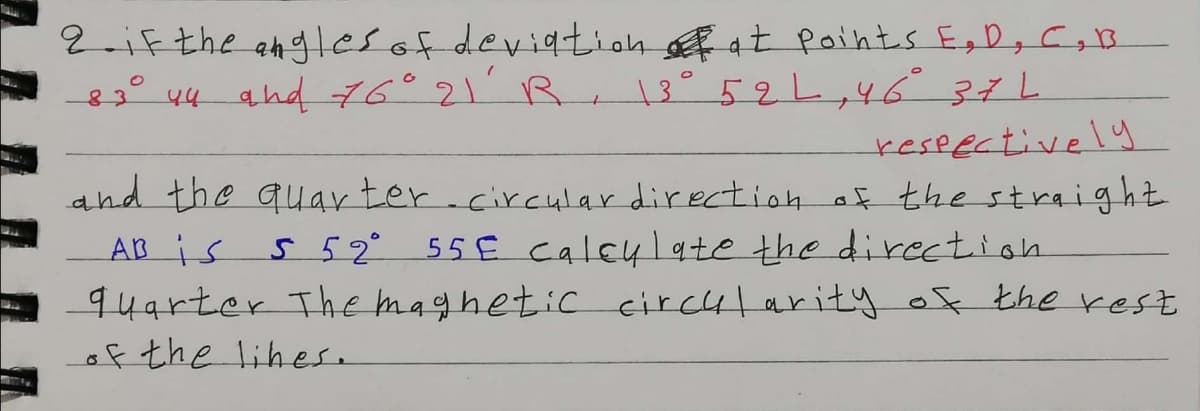 2-if the angles of deviation at points E, D, C, B
83° 44 and 76° 21' R, 13° 52 L, 46° 37 L
respectively
and the quarter-circular direction of the straight
AB is S 52° 55 E calculate the direction
quarter The magnetic circularity of the rest
of the lines.